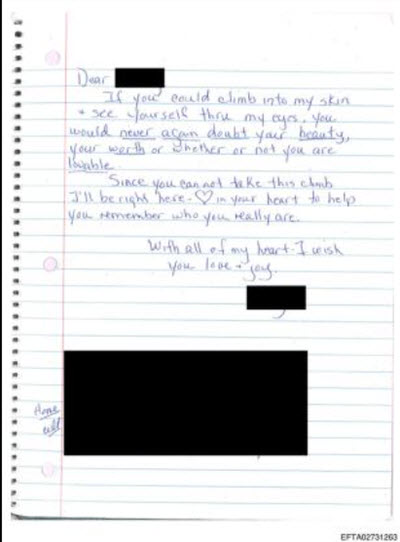 Dear
If you could climb into my skin
+ see yourself thru my eyes, you
would never again doubt your beauty,
your worth or whether or not you are
lovable.
Since you can not take this climb
I'll be right here - ♡ in your heart to help
you remember who you really are.
With all of my heart - I wish
you love + joy.
EFTA02731263